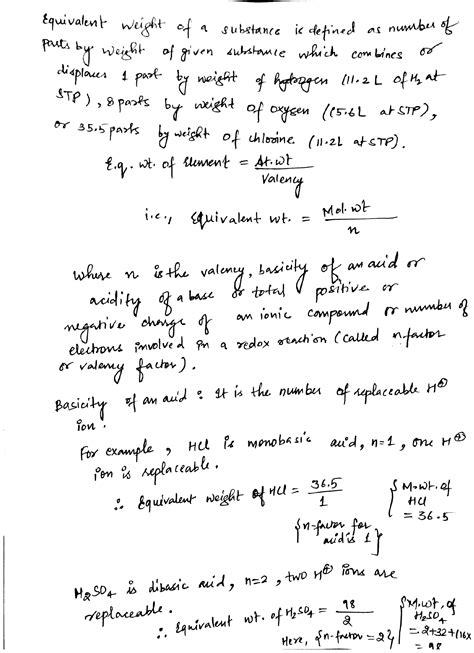 Equivalent weight of a substance is defined as number of
parts by weight of given substance which combines or
displaces 1 part by weight of hydrogen (11.2L of H₂ at
STP), 8 parts by weight of oxygen (5.6L at STP),
or 35.5 parts by weight of chlorine (11.2L at STP).
E.q. wt. of element = At. wt / Valency
i.e., Equivalent wt. = Mol. wt / n
where n is the valency, basicity of an acid or
acidity of a base or total positive or
negative charge of an ionic compound or number of
electrons involved in a redox reaction (called n-factor
or valency factor).
Basicity of an acid : It is the number of replaceable H⊕
ion.
For example, HCl is monobasic acid, n=1, one H⊕
ion is replaceable.
∴ Equivalent weight of HCl = 36.5 / 1 { M.wt. of
HCl
= 36.5
{n-factor for
acid is 1}
H₂SO₄ is dibasic acid, n=2, two H⊕ ions are
replaceable.
∴ Equivalent wt. of H₂SO₄ = 98 / 2 {M.wt. of
H₂SO₄
= 2+32+(16x
= 98
Here, {n-factor = 2}